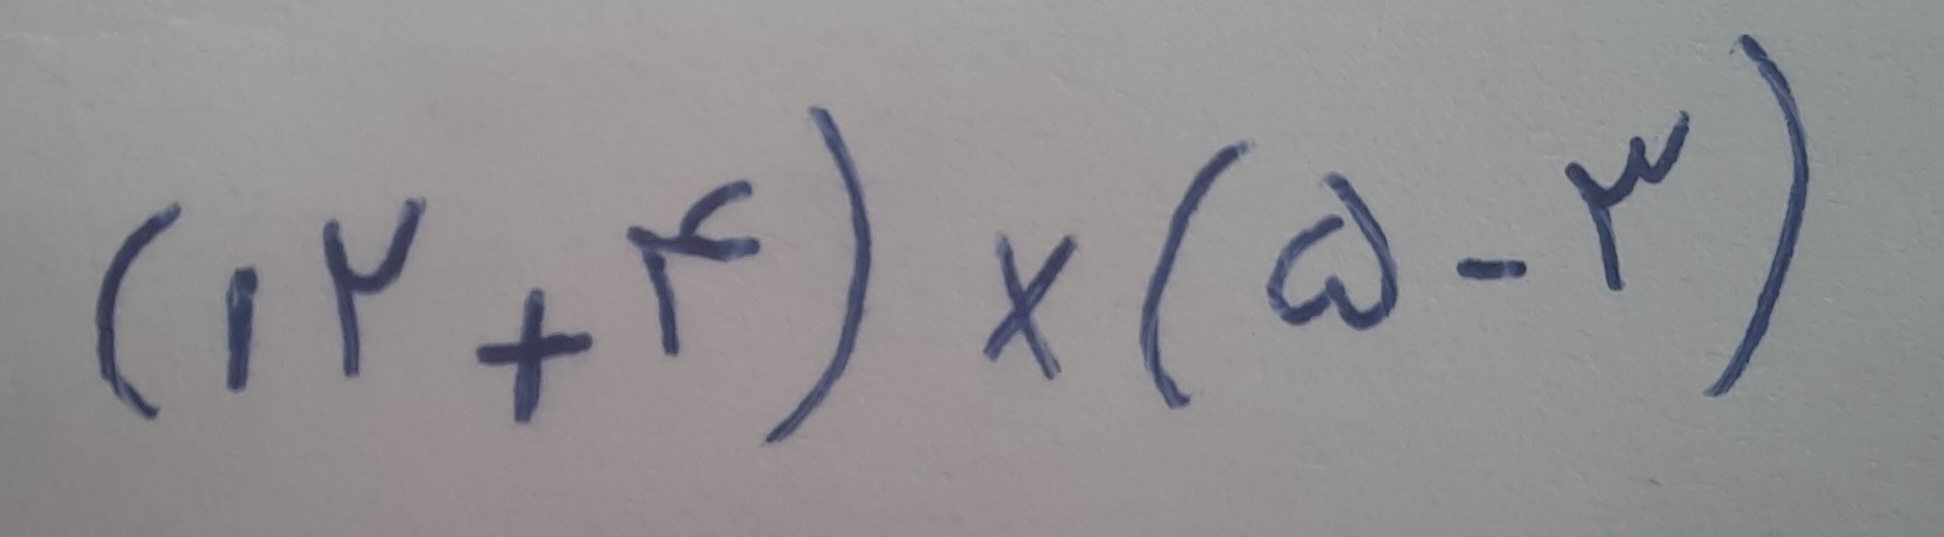 (۱۲+۴)×(۵-۳)